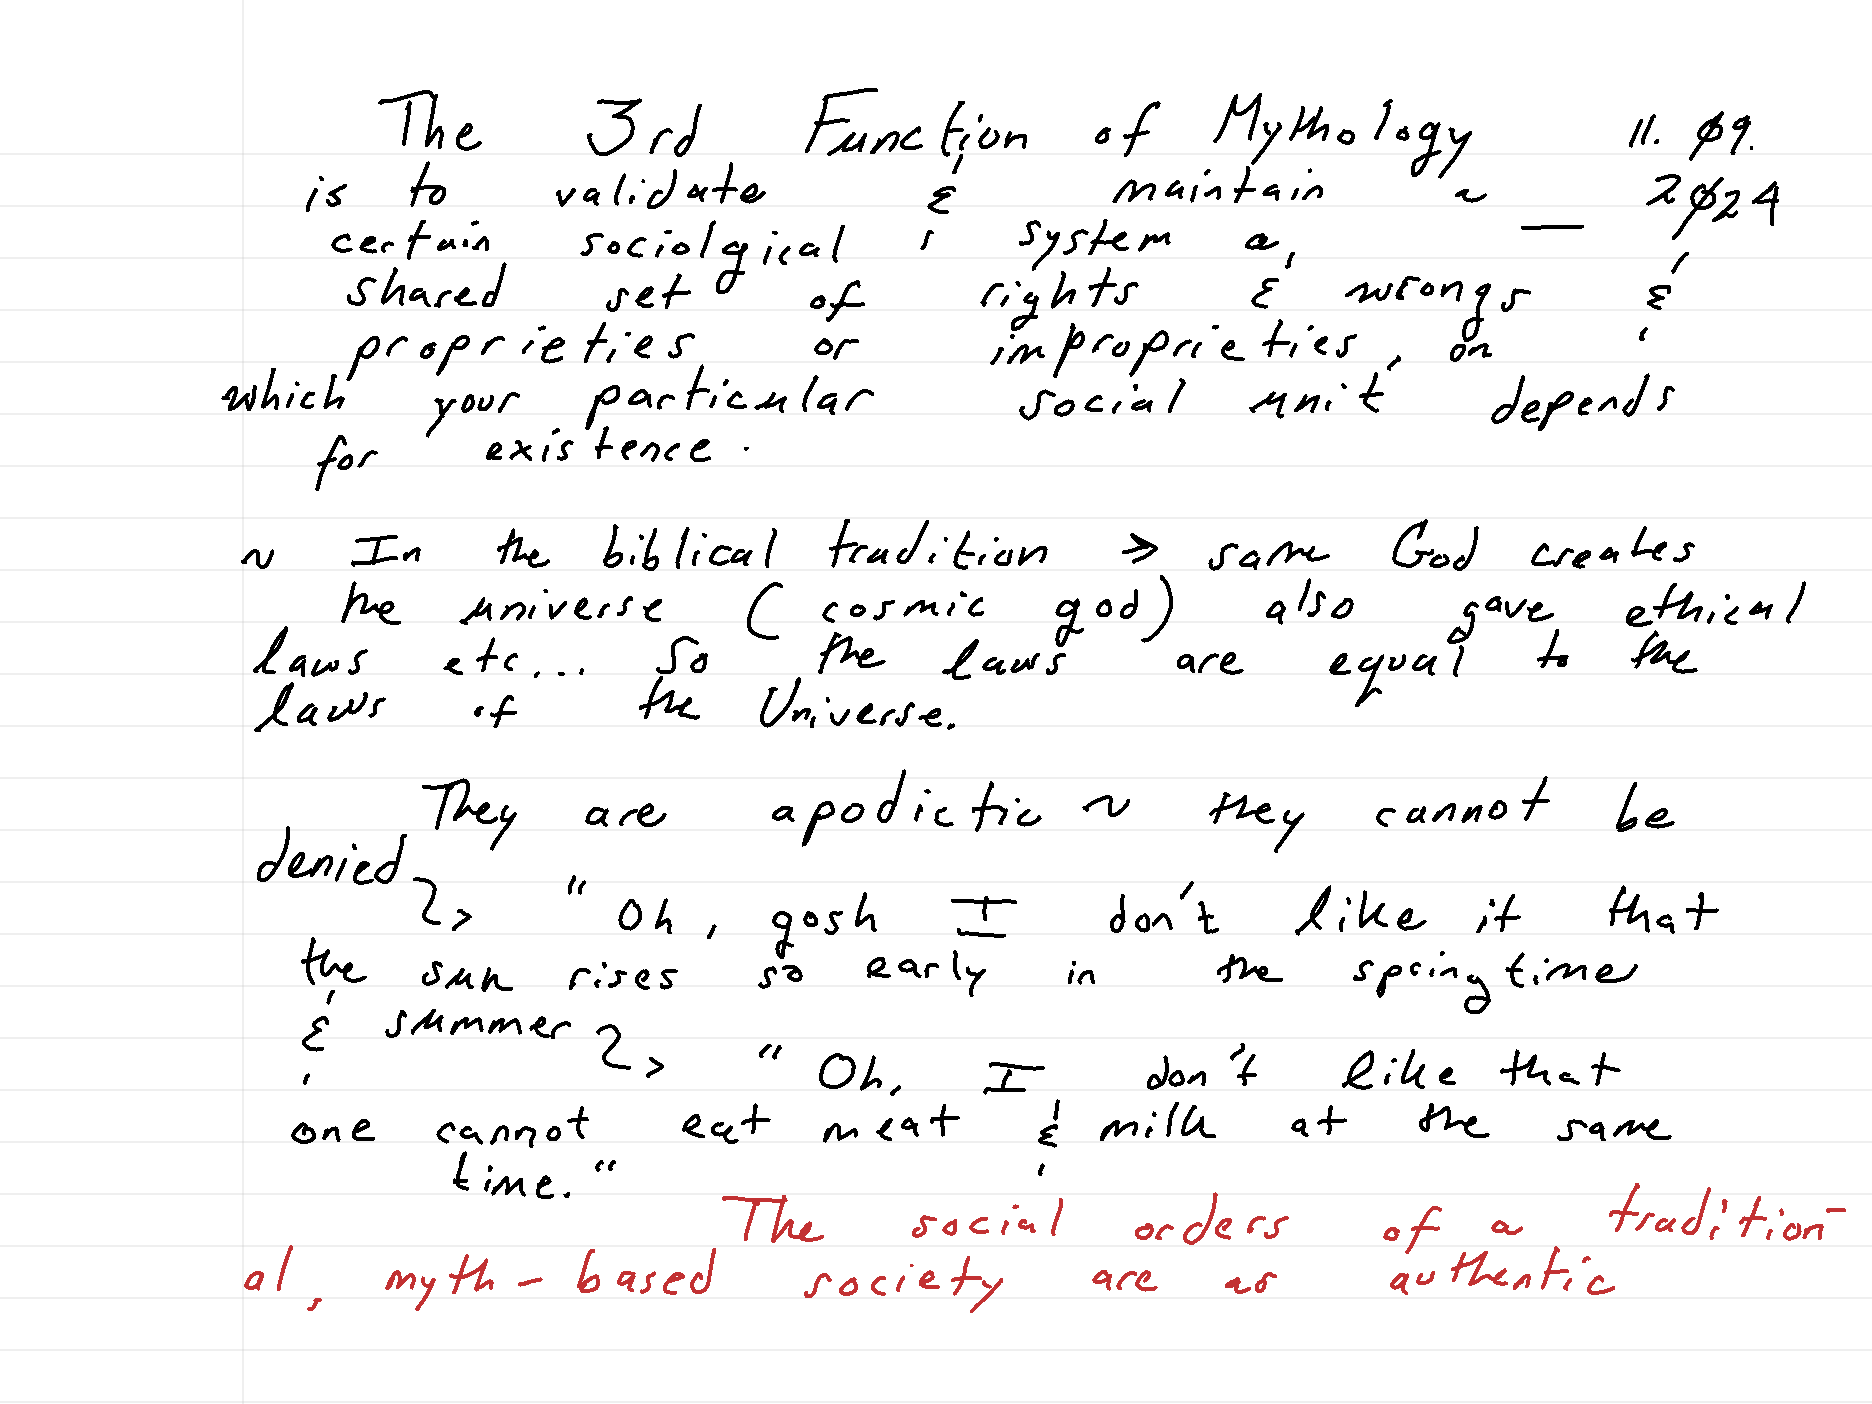 The 3rd Function of Mythology 11. Ø9.
is to validate & maintain ~ 2Ø24
certain sociolgical system a —
shared set of rights & wrongs &
proprieties or improprieties, on
which your particular social unit depends
for existence.
~ In the biblical tradition → same God creates
the universe (cosmic god) also gave ethical
laws etc... So the laws are equal to the
laws of the Universe.
They are apodictic ~ they cannot be
denied ~> "Oh, gosh I don't like it that
the sun rises so early in the springtime
& summer ~> "Oh, I don't like that
one cannot eat meat & milk at the same
time."
The social orders of a tradition-
al, myth-based society are as authentic